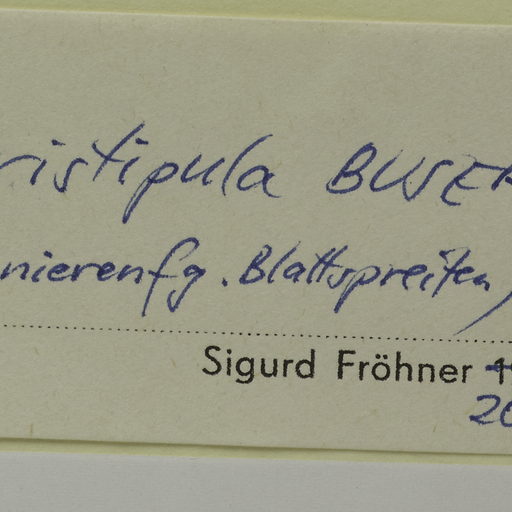 ristipula BUSER
nierenfg. Blattspreiten,
Sigurd Fröhner 1
20